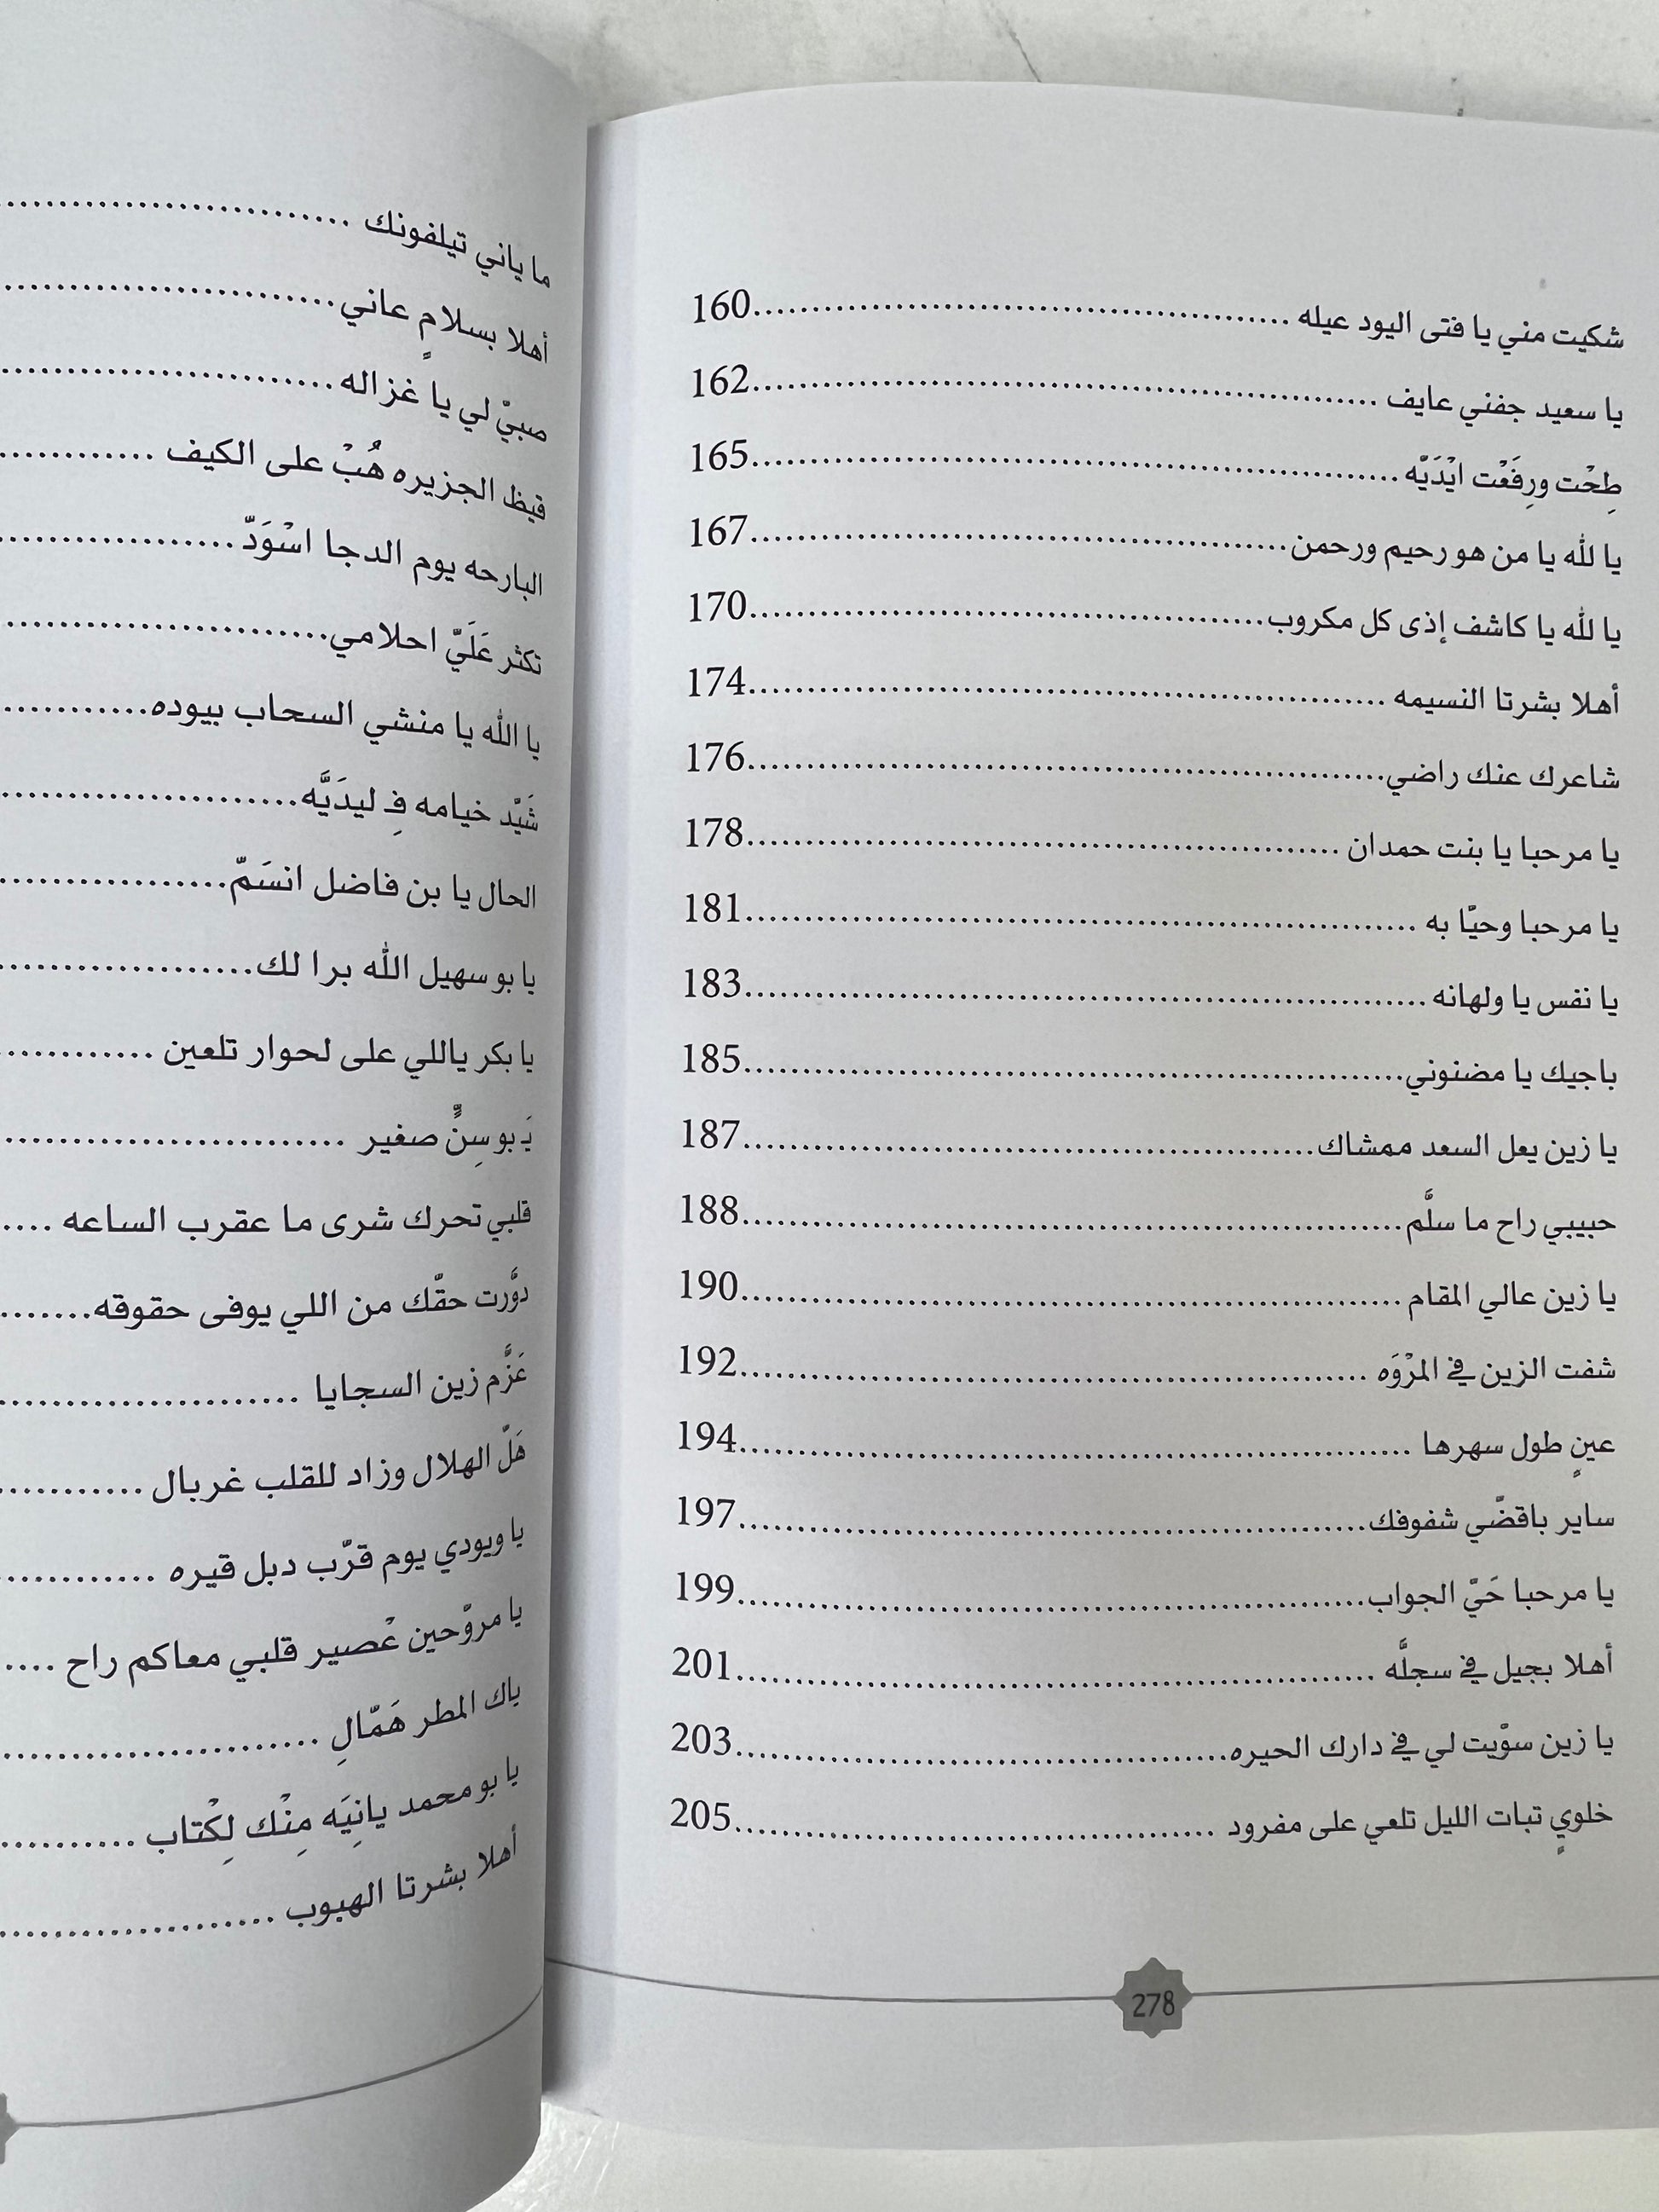 شكيت مني يا فتى اليود عيله ........ 160
يا سعيد جفني عايف ........ 162
طِحْت ورِفَعْت ايْدَيّه ........ 165
يا لله يا من هو رحيم ورحمن ........ 167
يا لله يا كاشف إذى كل مكروب ........ 170
أهلا بشرتا النسيمه ........ 174
شاعرك عنك راضي ........ 176
يا مرحبا يا بنت حمدان ........ 178
يا مرحبا وحيّا به ........ 181
يا نفس يا ولهانه ........ 183
باجيك يا مضنوني ........ 185
يا زين يعل السعد ممشاك ........ 187
حبيبي راح ما سلَّم ........ 188
يا زين عالي المقام ........ 190
شفت الزين في المرْوَه ........ 192
عينٍ طول سهرها ........ 194
ساير باقضّي شفوفك ........ 197
يا مرحبا حَيّ الجواب ........ 199
أهلا بجيل في سجلَّه ........ 201
يا زين سوّيت لي في دارك الحيره ........ 203
خلويٍ تبات الليل تلعي على مفرود ........ 205
278
ما ياني تيلفونك ........
أهلا بسلامٍ عاني ........
صبيّ لي يا غزاله ........
قيظ الجزيره هُبْ على الكيف ........
البارحه يوم الدجا اسْوَدّ ........
تكثر عَلَيّ احلامي ........
يا الله يا منشي السحاب بيوده ........
شَيّد خيامه فِـ ليدَيَّه ........
الحال يا بن فاضل انسَمّ ........
يا بو سهيل الله برا لك ........
يا بكر ياللي على لحوار تلعين ........
يَـ بو سِنٍّ صغير ........
قلبي تحرك شرى ما عقرب الساعه ....
دوَّرت حقّك من اللي يوفى حقوقه ........
عَزَّم زين السجايا ........
هَلّ الهلال وزاد للقلب غربال ........
يا ويودي يوم قرّب دبل قيره ........
يا مروّحين عْصير قلبي معاكم راح ....
ياك المطر هَمّالِ ........
يا بو محمد يانِيَه مِنْك لِكْتاب ........
أهلا بشرتا الهبوب ........